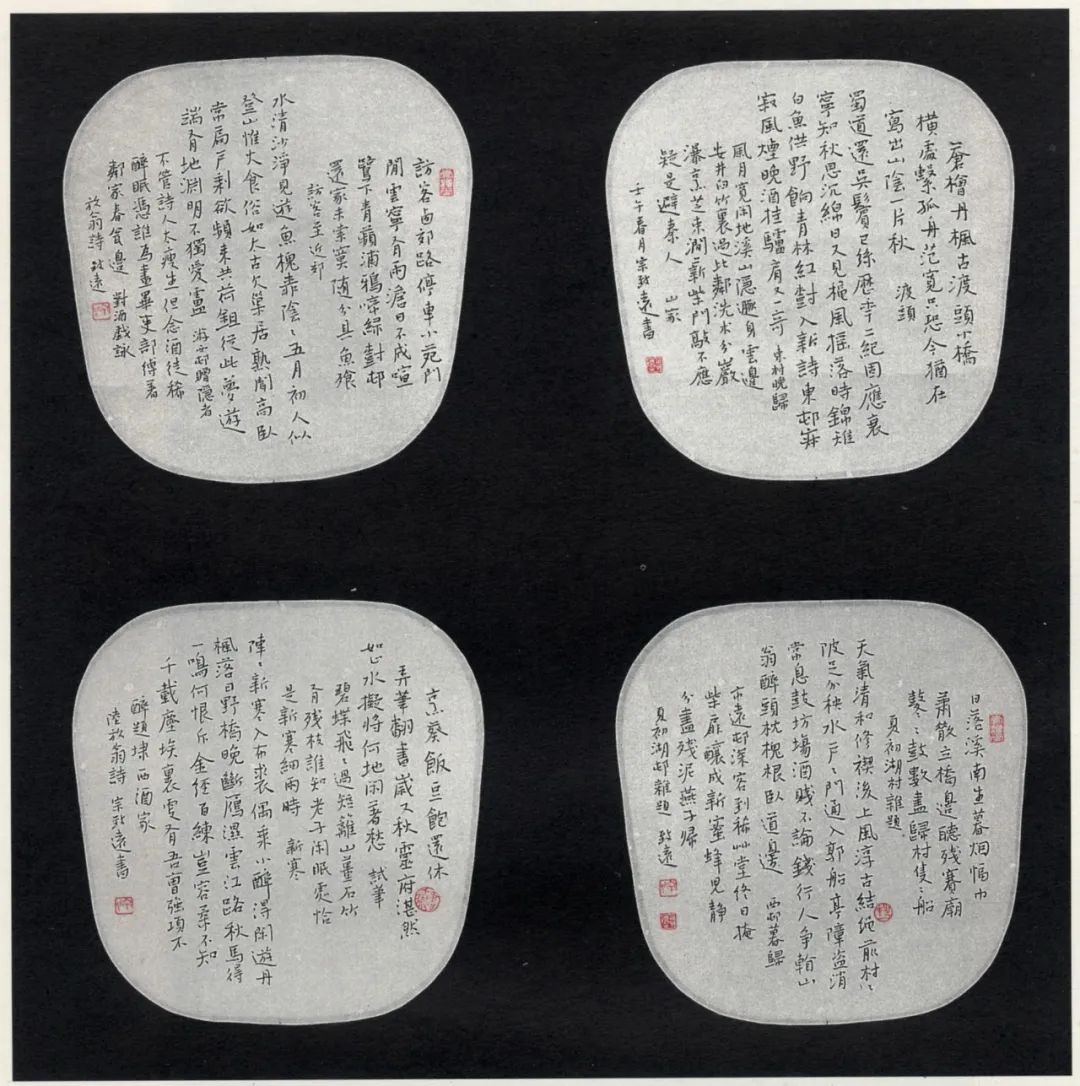 蒼檜丹楓古渡頭小橋
橫處繫孤舟范寬只恐今猶在
寫出山陰一片秋 渡頭
蜀道還吳鬢已絲歷年二紀固應衰
寧知秋思沉綿日又見橘風搖落時錦雉
白魚供野餉青林紅樹入新詩東邨寂
寂風煙晚酒挂驢肩又一奇 東村晚歸
風月寬閑地溪山隱遯身雲邊
安井臼竹裏過比鄰洗朮分巖
瀑烹芝束澗薪柴門敲不應
疑是避秦人 山家
壬午春月宗致遠書
訪客西郊路停車小苑門
閒雲寧有雨澹日不成暄
鷺下青蘋浦鴉啼綠樹邨
還家未索寞隨分具魚飧
訪客至近邨
水清沙淨見遊魚槐陰〻五月初人似
登山惟火食俗如太古欠巢居熟聞高臥
常扃戶剩欲頻來共荷鉏從此夢遊
端有地淵明不獨愛廬 游近邨贈隱者
不管詩人太瘦生但念酒徒稀
醉眠憑誰為畫畢吏部傅著
鄰家春瓮邊 對酒戲詠
放翁詩 致遠
日落溪南生暮烟幅巾
蕭散立橋邊聽殘賽廟
鼕〻鼓數盡歸村隻〻船
夏初湖村雜題
天氣清和修禊後土風淳古結繩前村〻
陂足分秧水戶〻門通入郭船亭障盜消
常息鼓坊場酒賤不論錢行人爭看山
翁醉頭枕槐根臥道邊 西邨暮歸
市遠邨深客到稀艸堂終日掩
柴扉釀成新蜜蜂兒靜
分盡殘泥燕子歸
夏初湖邨雜題 致遠
烹葵飯豆飽還休
弄筆翻書歲又秋靈府湛然
如止水擬將何地閑著愁 試筆
碧蝶飛〻過短籬山薑石竹
有殘枝誰知老子閑眠處恰
是新寒細雨時 新寒
陣〻新寒入布裘偶乘小醉得閑遊丹
楓落日野橋晚斷鴈濕雲江路秋馬得
一鳴何恨斥金經百練豈容柔不知
千載塵埃裏更有吾曹強項不
醉題埭西酒家
陸放翁詩 宗致遠書